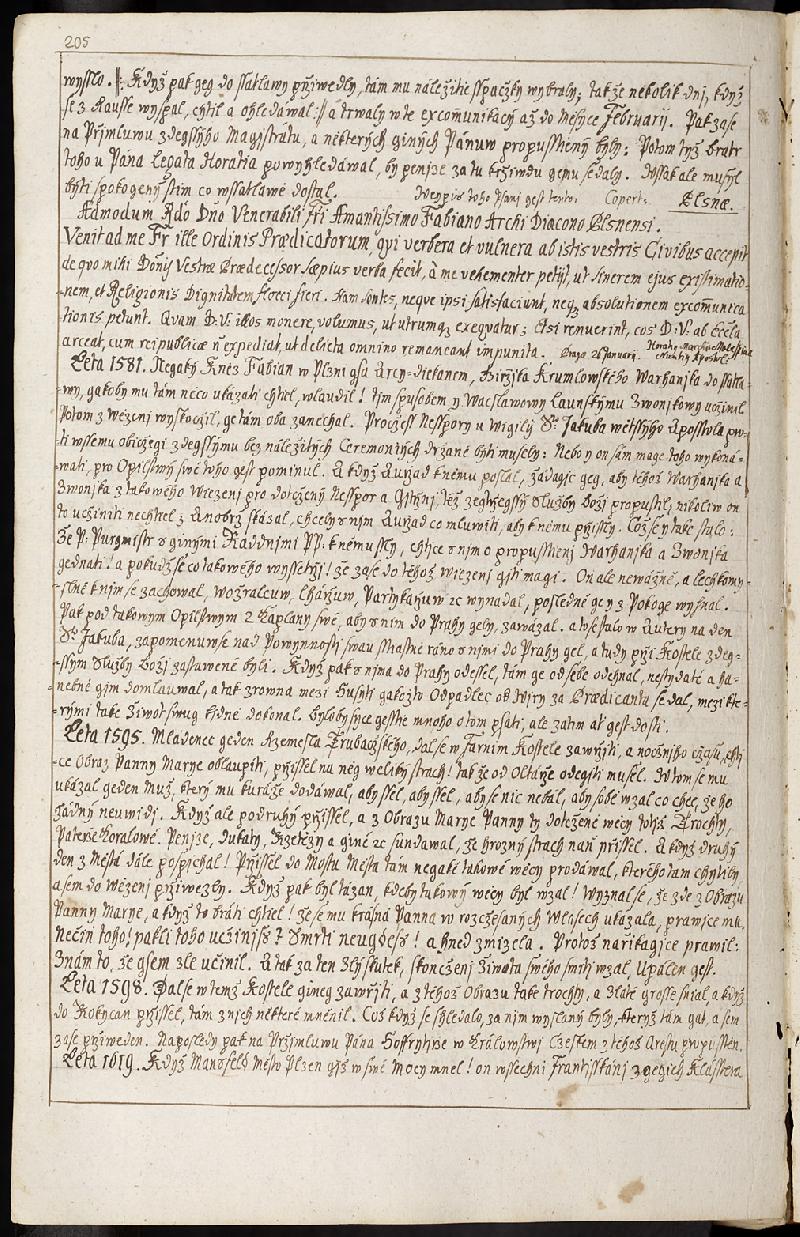 205
wysslo. Když pak geg do ssatlawy přiwedly, tám mu náležitie sspačky wybraly; tak že nekolik dnj, když
se z Rausse wyspal, chtil a ohledáwal: a trwaly w te excomunikacy až do Měsýce February. Pak zase
na Přjmluwu zdegssýho Magistrátu, a některých giných Pánuw propusstieny byly: Potom týž bratr
toho u Pána Legata Horatia powyhledáwal, by penjze za tu křiwdu gemu se daly. Wssak ale musýl
býti spokogený s tim co w ssatlawě dostal. Weypis toho Psanj gest tento: Copert: Plsnæ.
Admodum Rdo Dno Venerabili Fri Amantissimo Fabiano Archi Diacono Plsnensi.
Venit ad me Fr ille Ordinis Prædicatorum, qvi verbera et vulnera ab istis vestris Civibus accepit
de qvo mihi Donis Vestræ Prædecessor sæpius verba fecit, à me vehementer petijt, ut sinerem ejus existimatio-
-nem, et Religionis Dignitatem flocci fieri. Nam sontes, neqve ipsi satisfaciunt, neq absolutionem excomunica
tionis petunt. Qvam D. V. illos monere, volumus, ut utrumq exeqvatur; Etsi renuerint, eos D. V. ab Eccla
arceat, cum rei publicæ n expediat, ut delicta omnino remaneant impunita. Praga 26 January.
Léta 1581. Negaký Kněz Fabian w Plzni gsa Arcy-Dietanem, Giržjka Krumlowského Warhanjka do ssatla-
-wy, gakoby mu tám něco ukázati chtiel, wlaudil! tjm spusobem y Wacslawowy Launskýmu Zwonjkowy učinil
Potom z wězenj wyskočil, ge tám oba zanechal. Pročež Nesspory u wigilý S. Jakuba wětssýho Aposstola pro-
ti wssemu običegi zdegssýmu bez náležitých Ceremoniých držané býti musely: Nebo y on sám mage toho wykoná-
wati, pro Opilstwý swé toho gest pominul. A když Auržad k němu poslal, žádagic geg, aby téhož Warhanjka a
Zwonjka z takowého Wiezenj pro dotčený Nesspor a Gitřnj, též zegtřegssý Služby Božj propustil, nikoliw on
to učiniti nechtiel; Anobrž skázal, chcely s nim Auržad co mluwiti, aby k němu přissly. Což se y také stalo:
Že P. Purgmistr s ginými Raddnjmi PP. k němu ssly, chtice s njm o propusstienj Warhanjka a Zwonjka
gednati! a pokudž se co takowého wyssetřj! že zase do téhož wiezenj gjti magi. On ale newážně, a lechkomy-
-slně k nim se zachowal, Wožralcuw, Lhářuw, Partykářuw ec wynadal, posledně ge y z Pokoge wyhnal.
Pak pod takowým Opilstwým 2 Kaplany swé, aby s nim do Prahy gely, zawázal. a to se stalo w Autery na den
S. Jakuba, zapomenuwse nad Powynnostj swau sstastně ráno s nimi do Prahy gel, a tudy přj Kostele zdeg-
-ssým Služby Božj zastawené byli. Když pak s njma do Prahy odessel, tám ge od sebe odehnal, nestydatě a ha-
nebně gim domlauwal, a tak zrowna mezi Husyti gakožto Odpadlec od Wjry za Prædicanta se dal, mezi kte-
rými také žiwot swug bidně dokonal. byloby sýce gesstě mnoho o tom psáti, ale zatim ať gest dosti.
Léta 1595. Mládenec geden Řzemesla Trubačského, dal se w Farnim Kostele zawřjti, a nočnjho času, chtj-
-ce Obraz Panny Marye obloupiti, přissel na něg weliký strach! tak že od Oltáře odegiti musel. W tom se mu
ukázal geden Muž, který mu kuráže dodáwal, aby ssel, aby ssel, aby se nic nebál, aby sobě wzal co chce, že ho
žádný neuwidj. Když ale podruhý přissel, a z Obrazu Marye Panny ty dotčené wěcy totjž Trochty,
Pateře Koralowé. Penjze, dukáty, Řzetězy a giné ec sundawal, že hrozný strach naň přissel. A když druhý
den z Města dále pospýchal! Přissel do Mostu Města tám negaké takowé wěcy prodáwal, kterého tam chytily,
a sem do wězenj přiwezly. Když pak byl tázan, kdeby takowý wěcy byl wzal! Wyznal se, že zde z Obrazu
Panny Marye, a když to bráti chtiel! že se mu krásná Panna w rozčesaných Wlasech ukázala, prawjce mu,
Nečiň toho! pakli toho učinjss? Smrti neugdess! a hned zmizela. Protož nařikagjce prawil:
Znám to, že gsem zle učinil. A tak za ten Zlý skutek, skončenj žiwota swého smrtj wzal, Upálen gest.
Léta 1598. Dal se w témž Kostele gineg zawřjti, a z téhož Obrazu také trochty, a zlaté grosse sňal, a když
do Rokycan přissel, tám z nich některé měnil. Což když se shledalo, za njm wyslaný byly, kterýž tám gat, a sem
zase přiweden. Naposledy pak na Přjmluwu Pána Hoffrychtýře w Králowstwj Cžeskem z téhož Arestu propusstěn.
Léta 1619. Když Mansfeld Město Plzen giž w swé Mocy mnel! on wssechni Frantisskáni z gegich Klásstera